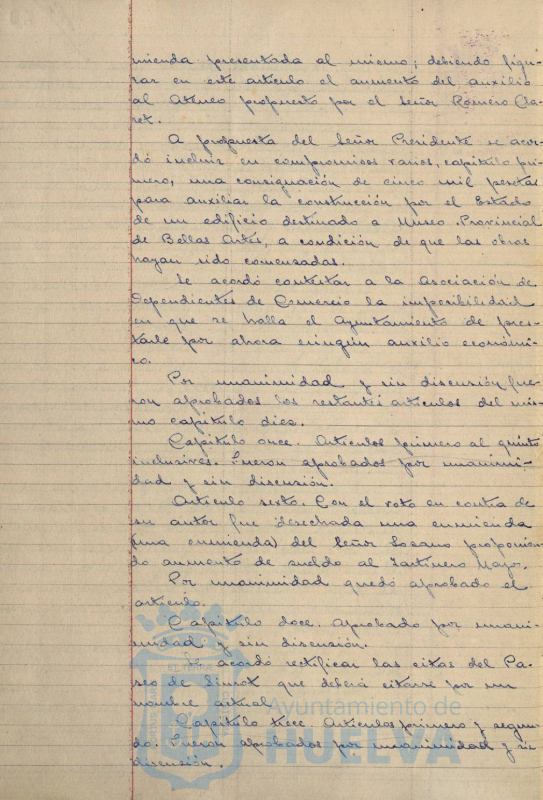 mienda presentada al mismo; debiendo figu-
rar en este artículo el aumento del auxilio
al Ateneo propuesto por el Señor Romero Cla-
ret.
A propuesta del Señor Presidente se acor-
dó incluir en compromisos varios, capítulo pri-
mero, una consignación de cinco mil pesetas
para auxiliar la construcción por el Estado
de un edificio destinado a Museo Provincial
de Bellas Artes, a condición de que las obras
hayan sido comenzadas.
Se acordó contestar a la Asociación de
Dependientes de Comercio la imposibilidad
en que se halla el Ayuntamiento de pres-
tarle por ahora ningún auxilio económi-
co.
Por unanimidad y sin discusión fue-
ron aprobados los restantes artículos del mis-
mo capítulo diez.
Capítulo once. Artículos primero al quinto
inclusives. Fueron aprobados por unanimi-
dad y sin discusión.
Artículo sexto. Con el voto en contra de
su autor fue desechada una enmienda
(una enmienda) del Señor Lozano proponien-
do aumento de sueldo al Jardinero Mayor.
Por unanimidad quedó aprobado el
artículo.
Capítulo doce. Aprobado por unani-
midad y sin discusión.
Se acordó rectificar las citas del Pa-
seo de que deberá citarse por su
nombre actual.
Capítulo trece. Artículos primero y segun-
do. Fueron aprobados por unanimidad y sin
discusión.
Ayuntamiento de
HUELVA